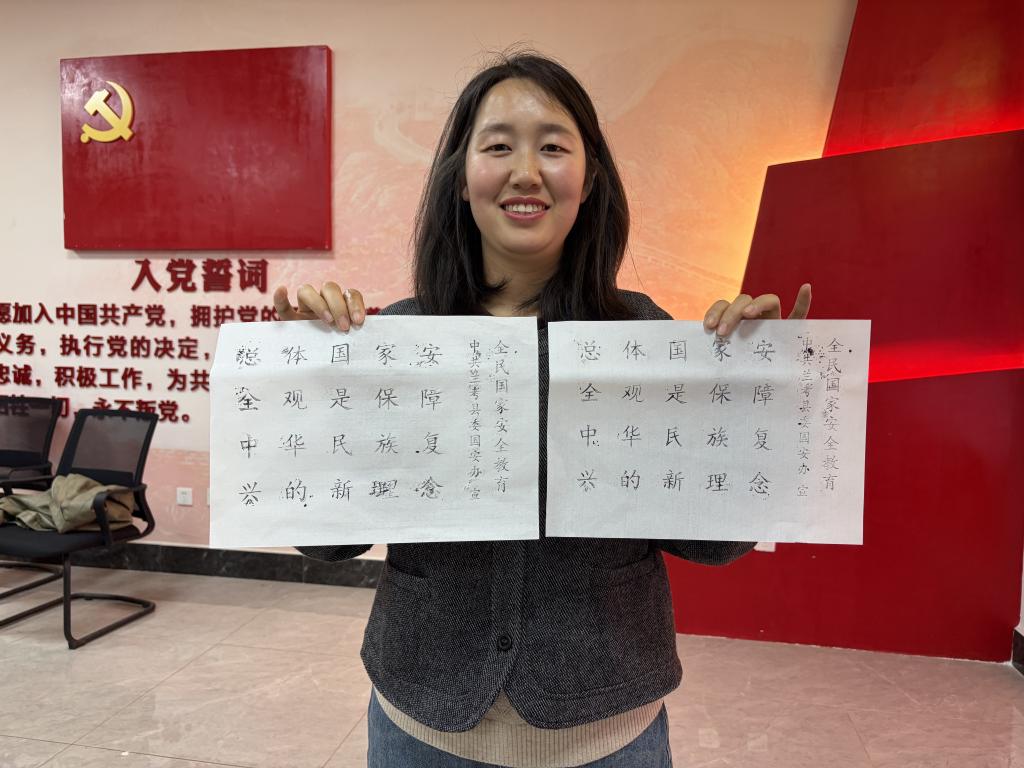 入党誓词
愿加入中国共产党，拥护党的
义务，执行党的决定，
忠诚，积极工作，为共
切，永不叛党。
总体国家安
全观是保障
中华民族复
兴的新理念
中共兰考县委国安办 宣
全民国家安全教育
总体国家安
全观是保障
中华民族复
兴的新理念
中共兰考县委国安办 宣
全民国家安全教育